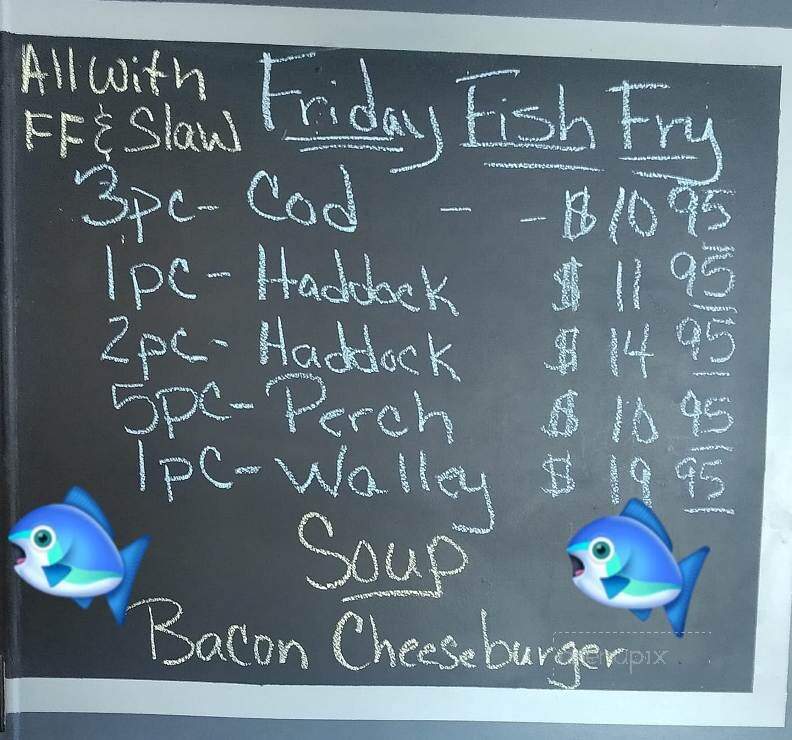 All with
FF & Slaw
Friday Fish Fry
3pc- Cod - - $10 95
1pc- Haddock $ 11 95
2pc- Haddock $ 14 95
5pc- Perch $ 10 95
1pc- Walley $ 19 95
Soup
Bacon Cheeseburger